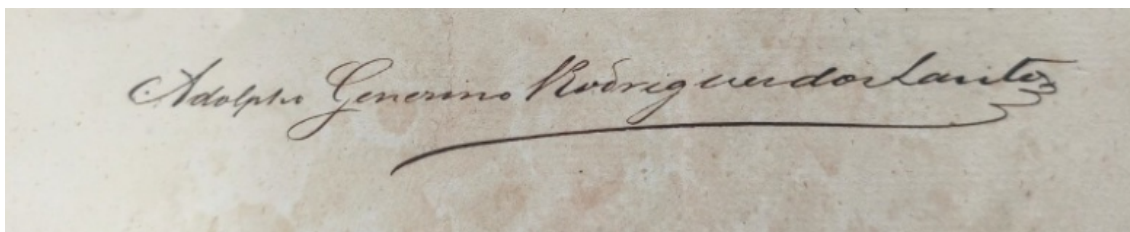 Adolpho Generino Rodrigues dos Santos